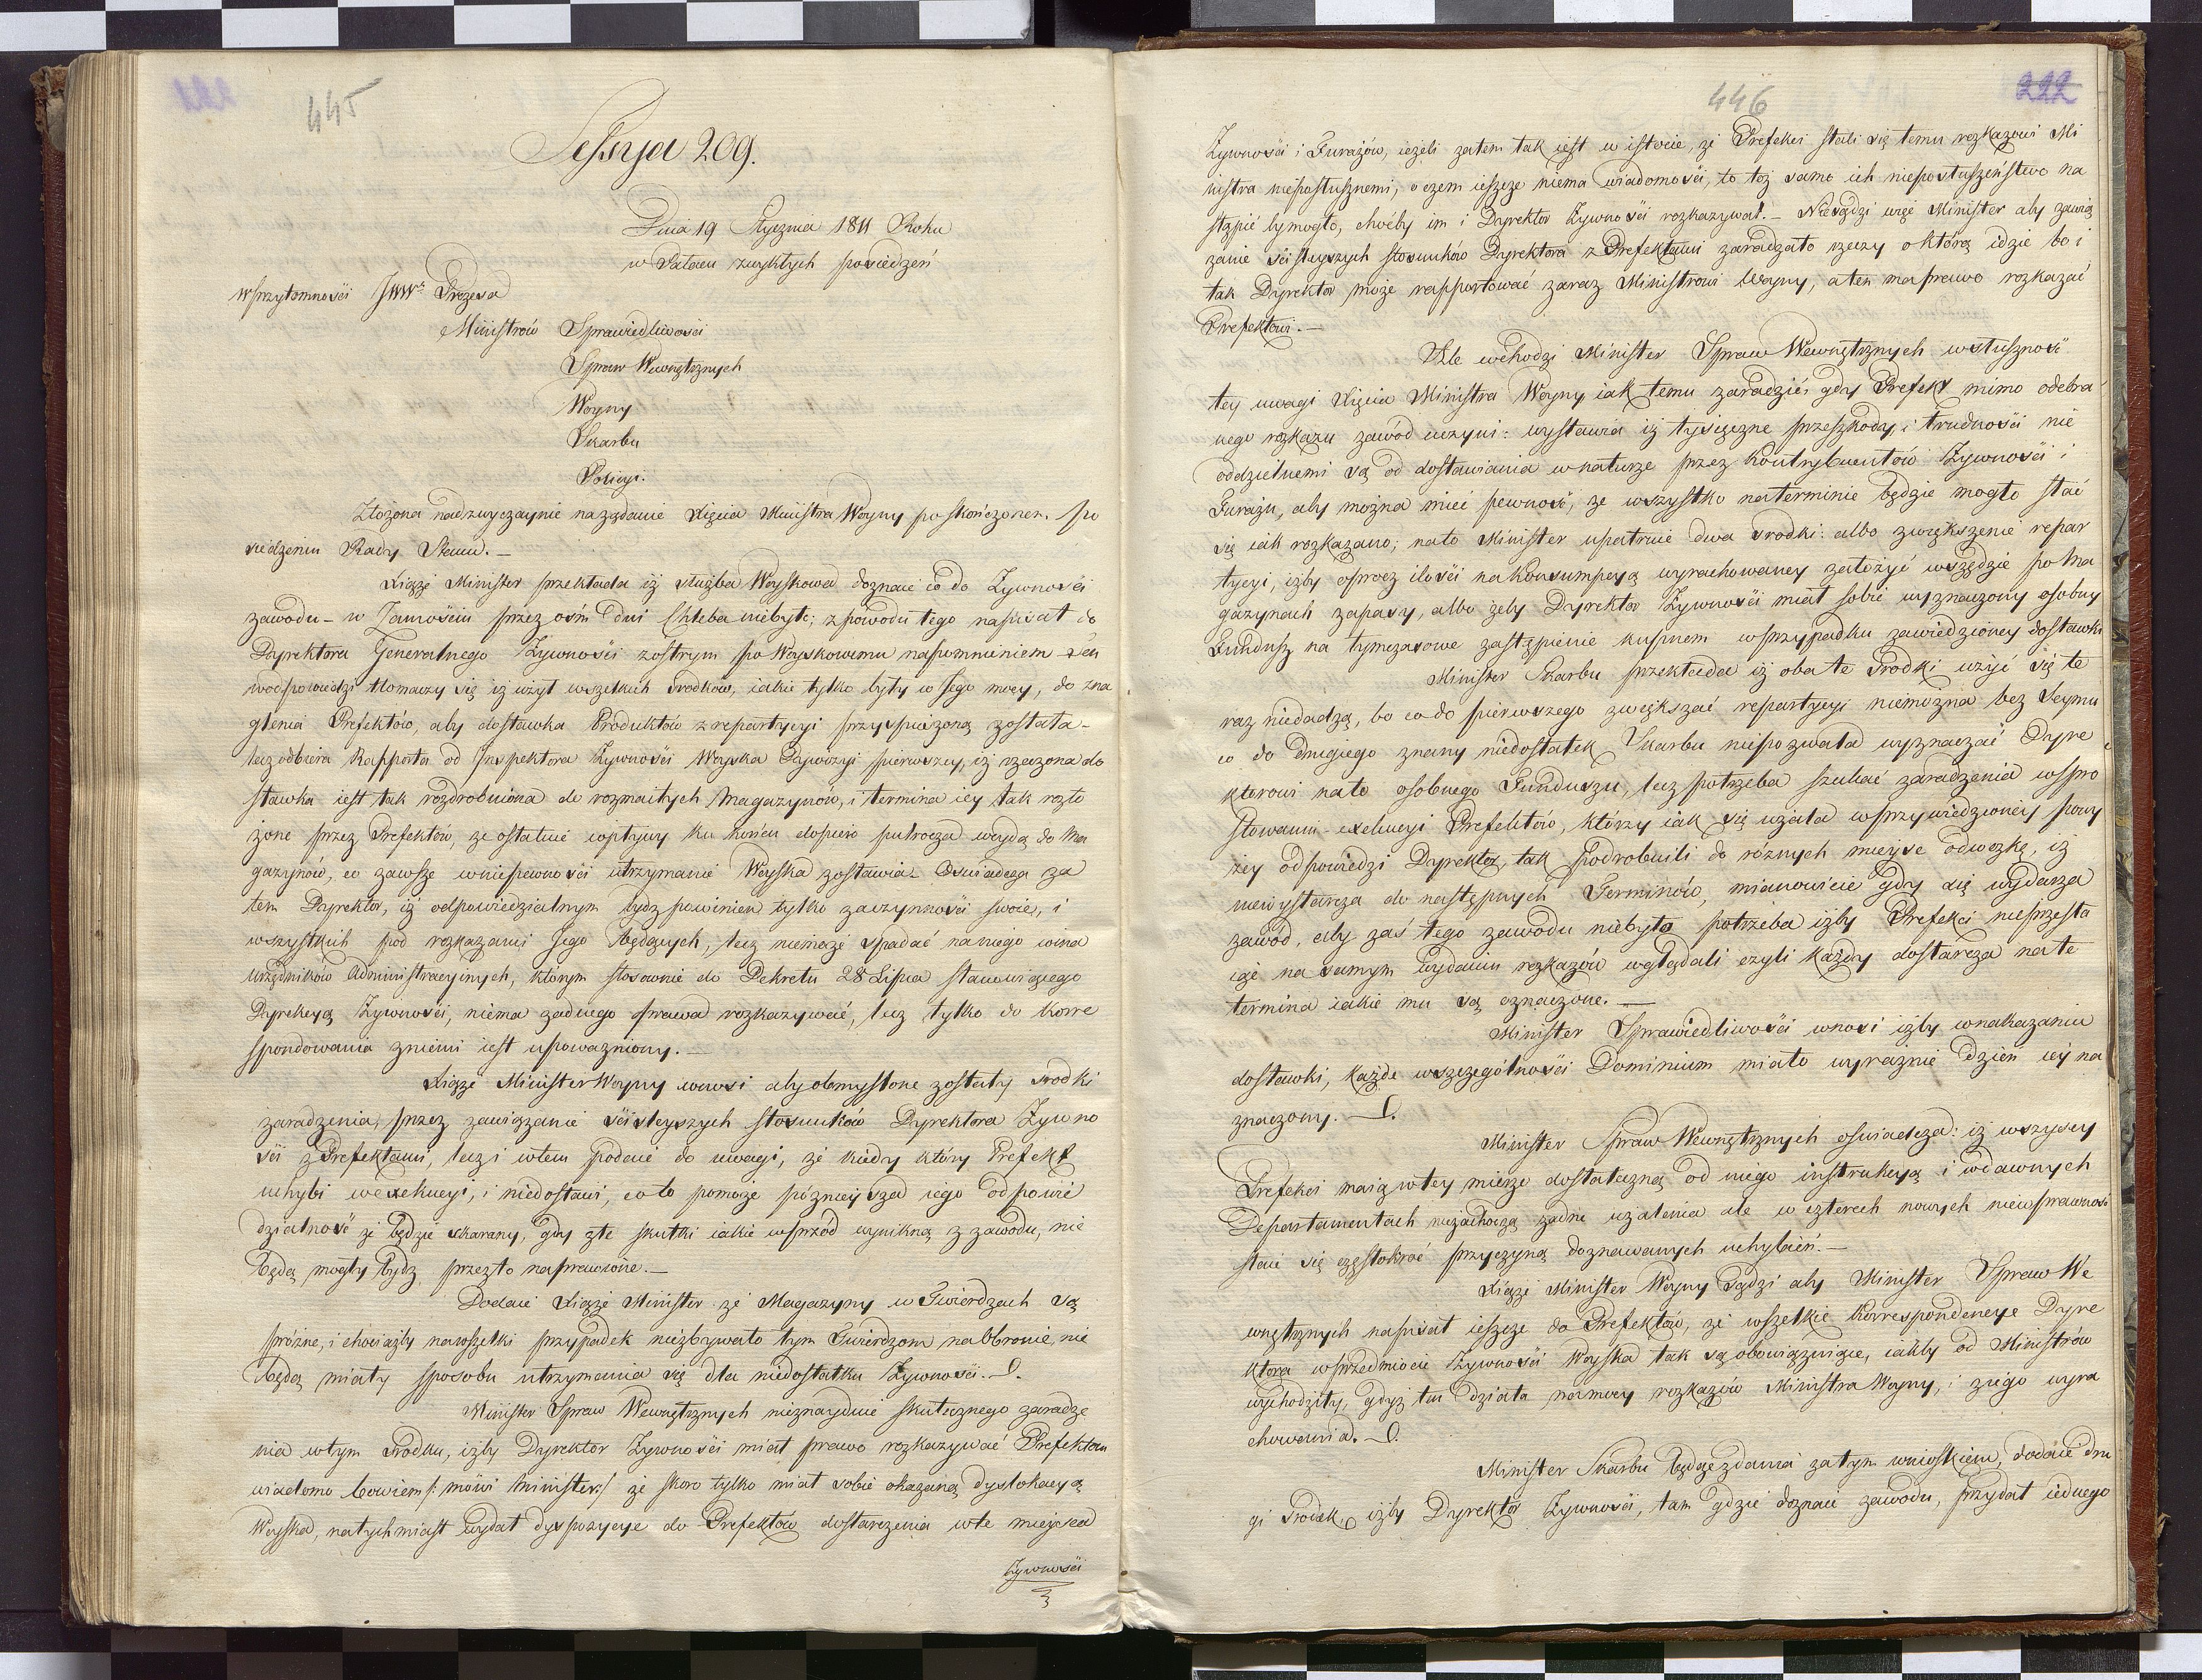 445
Sessya 209.
Dnia 19 Stycznia 1811 Roku
w Pałacu zwykłych posiedzeń
w przytomności JWW. Prezesa
Ministrów Sprawiedliwości
Spraw Wewnętrznych
Woyny
Skarbu
Policyi.
Złożona nadzwyczaynie na żądanie Xięcia Ministra Woyny po skończonem po
siedzeniu Rady Stanu. —
Xiąże Minister przekłada iż służba Woyskowa doznaie co do Żywności
zawodu – w Zamościu przez ośm dni Chleba niebyło; z powodu tego napisał do
Dyrektora Generalnego Żywności z ostrym po Woyskowemu napomnieniem – ten
w odpowiedzi tłomaczy się iż użył wszelkich srodków, iakie tylko były w Jego mocy, do zna
glenia Prefektów, aby dostawka Produktów z repartycyi przyspieszoną została –
lecz odbiera Rapporta od Inspektora Żywności Woyska Dywizyi pierwszey, iż rzeczona do
stawka iest tak rozdrobniona do rozmaitych Magazynów, i termina iey tak rozło
żone przez Prefektów, że ostatnie w przyszłym ku końcu dopiero półrocza weydą do Ma
gazynów, co zawsze w niepewności utrzymanie Woyska zostawia. Oswiadcza za
tem Dyrektor, iż odpowiedzialnym bydz powinien tylko za czynności swoie, i
wszystkich pod rozkazami Jego będących, lecz niemoże spadać na niego wina
Urzędników Administracyinych, którym stosownie do Dekretu 28 Lipca stanowiącego
Dyrekcyą Żywności, niema żadnego prawa rozkazywać, lecz tylko do korre
spondowania z niemi iest upoważniony. —
Xiąże Minister Woyny wnosi aby obmyślone zostały srodki
zaradzenia, przez zawiązanie ściśleyszych stosunków Dyrektora Żywno
ści z Prefektami, lecz i w tem podaie do uwagi, że kiedy który Prefekt
uchybi w exekucyi, i niedostawi, co to pomoże późnieysza iego odpowie
dzialność że będzie skarany, gdy złe skutki iakie wprzód wynikną z zawodu, nie
będą mogły bydz przez to naprawione. —
Dodaie Xiąże Minister że Magazyny w Twierdzach są
próżne, i chociażby na wszelki przypadek niezbywało tym Twierdzom na obronie, nie
będą miały sposobu utrzymania się dla niedostatku Żywności. —
Minister Spraw Wewnętrznych nieznayduie skutecznego zaradze
nia w tym srodku, iżby Dyrektor Żywności miał prawo rozkazywać Prefektom
wiadomo bowiem /: mówi Minister :/ że skoro tylko miał sobie okazaną dyslokacyą
Woyska, natychmiast wydał dyspozycye do Prefektów dostarczenia w te mieysca
Żywności
446
222
Żywności i Furażów, ieżeli zatem tak iest w istocie, że Prefekci stali się temu rozkazowi Mi
nistra nieposłusznemi, o czem ieszcze niema wiadomości, to toż samo ich nieposłuszeństwo na
stąpić bymogło, choćby im i Dyrektor Żywności rozkazywał. – Niesądzi więc Minister aby zawią
zanie ściśleyszych stosunków Dyrektora z Prefektami zaradzało rzeczy o którą idzie bo i
tak Dyrektor może rapportować zaraz Ministrowi Woyny, a ten ma prawo rozkazać
Prefektowi. —
Ale wchodzi Minister Spraw Wewnętrznych w słuszność
tey uwagi Xięcia Ministra Woyny iak temu zaradzić, gdy Prefekt mimo odebra
nego rozkazu zawód uczyni: wystawia iż tysiączne przeszkody, i trudności nie
oddzielnemi są od dostawiania w naturze przez Kontrybuentów Żywności i
Furażu, aby można mieć pewność, że wszystko na terminie będzie mogło stać
się iak rozkazano; na to Minister upatruie dwa srodki: albo zwiększenie repar
tycyi, iżby oprocz ilości na konsumpcyą wyrachowaney założyć wszędzie po Ma
gazynach zapasy, albo żeby Dyrektor Żywności miał sobie wyznaczony osobny
Fundusz na tymczasowe zastąpienie kupnem w przypadku zawiedzioney dostawki
Minister Skarbu przekłada iż oba te srodki użyć się te
raz niedadzą, bo co do pierwszego zwiększać repartycyi niemożna bez Seymu
co do drugiego znany niedostatek Skarbu niepozwala wyznaczać Dyre
ktorowi na to osobnego Funduszu, lecz potrzeba szukać zaradzenia w spro
stowaniu exekucyi Prefektów, którzy iak się użala w przywiedzioney powy
żey odpowiedzi Dyrektor, tak podrobnili do róznych mieysc odwózkę, iż
niewystarcza do następnych Terminów, mianowicie gdy się wydarza
zawód, aby zaś tego zawodu niebyło potrzeba iżby Prefekci nieprzesta
iąc na samym wydaniu rozkazów wglądali czyli każdy dostarcza na te
termina iakie mu są oznaczone. —
Minister Sprawiedliwości wnosi iżby w nakazaniu
dostawki, każde w szczególności Dominium miało wyraźnie dzień iey na
znaczony. —
Minister Spraw Wewnętrznych oświadcza: iż wszyscy
Prefekci maią w tey mierze dostateczną od niego instrukcyą i w dawnych
Departamentach niezachodzą żadne użalenia ale w czterech nowych niewprawność
staie się częstokroć przyczyną doznawanych uchybień. —
Xiąże Minister Woyny sądzi aby Minister Spraw We
wnętrznych napisał ieszcze do Prefektów, że wszelkie Korrespondencye Dyre
ktora w przedmiocie Żywności Woyska tak są obowiązuiące, iakby od Ministrów
wychodziły, gdyż ten działa na mocy rozkazów Ministra Woyny, i z iego wyra
chowania. —
Minister Skarbu będąc zdania za tym wnioskiem, dodaie dru
gi srodek, iżby Dyrektor Żywności, tam gdzie doznaie zawodu, przydał iednego